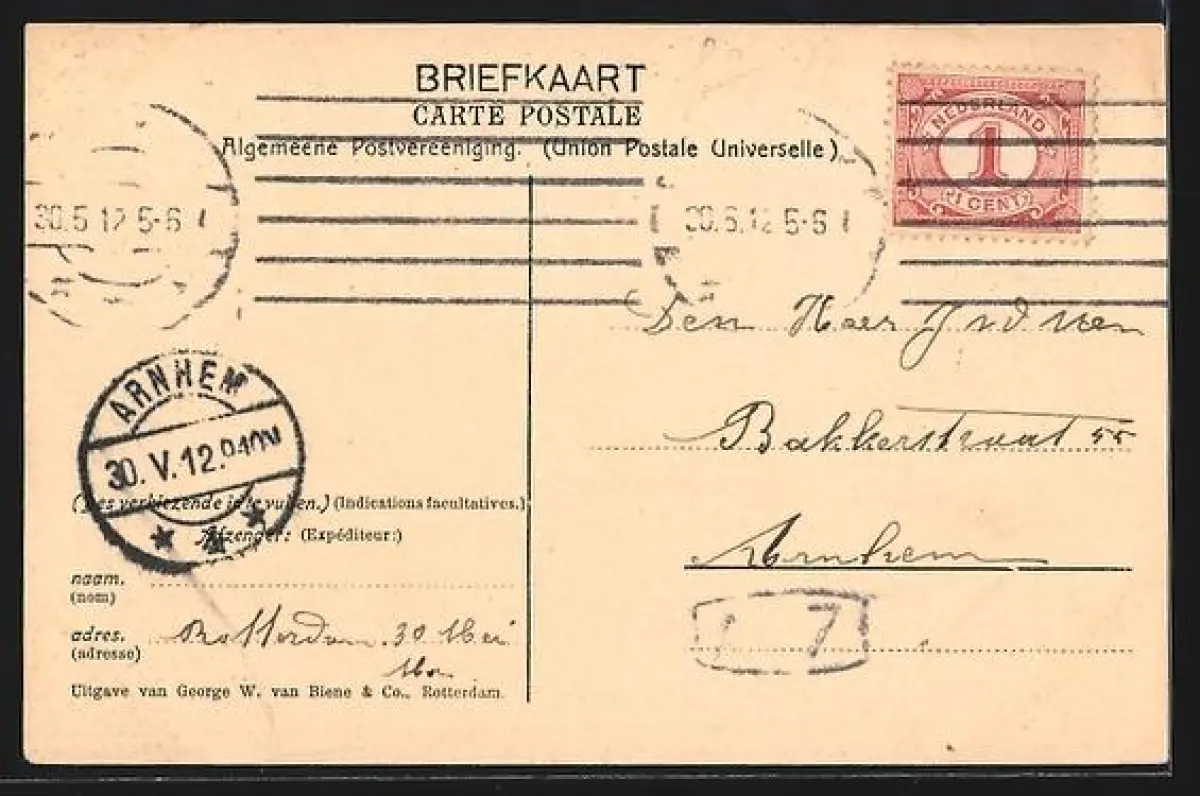 BRIEFKAART
CARTE POSTALE
Algemeene Postvereeniging. (Union Postale Universelle)
NEDERLAND
1
1 CENT
30.5 12 5-6
5-6
Den Heer
Bakkerstraat 55
Arnhem
7
ARNHEM
30. V. 12.
(Des verkiezende in te vullen.) (Indications facultatives.)
Afzender: (Expéditeur:)
naam.
(nom)
adres. Rotterdam. 30 Mei
(adresse)
Uitgave van George W. van Biene & Co., Rotterdam.